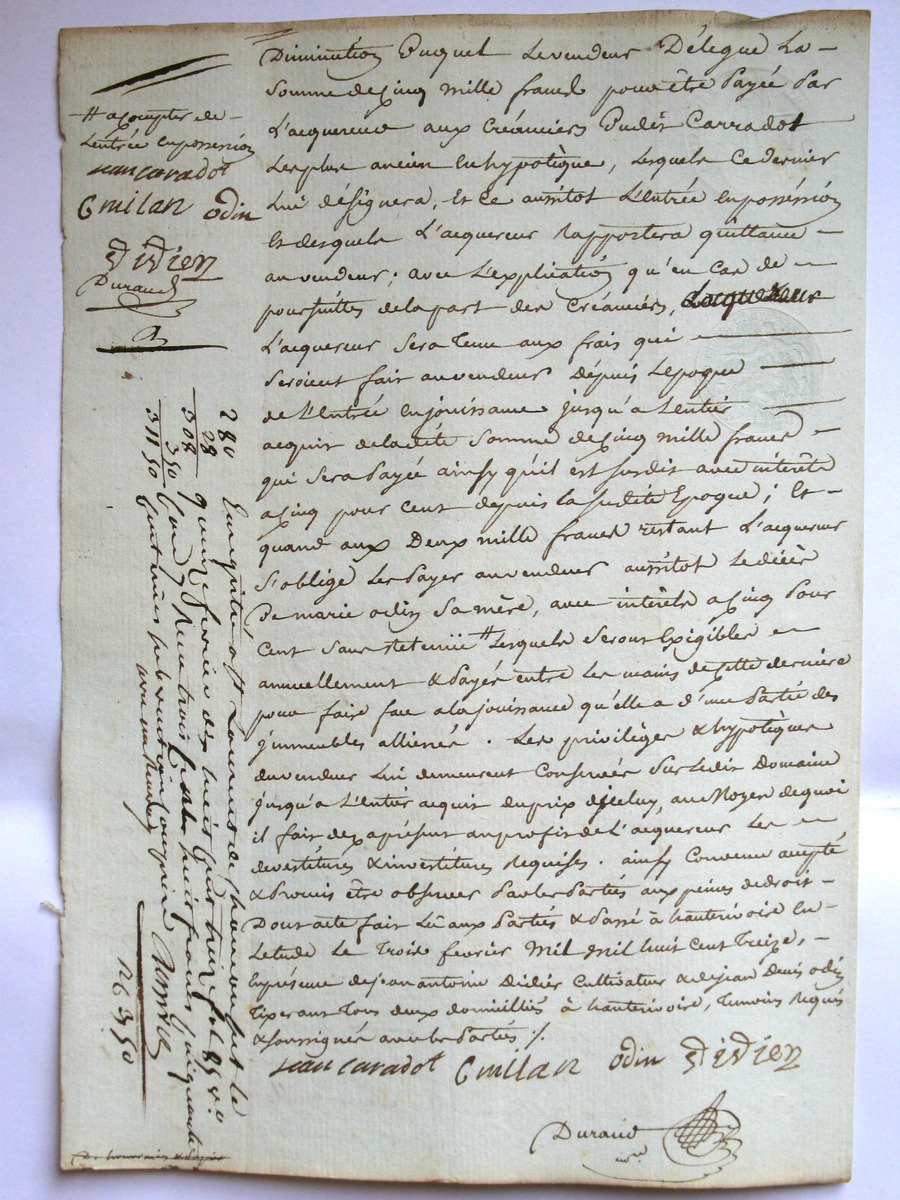 Diminution Duquel Levendeur Délegue La
Somme de Cinq mille francs pour être Payée Par
L'acquereur aux Créanciers Dudit Carradot
Les plus ancien En hypotèque, Lesquels Ce dernier
Lui désignera, Et ce aussitot L'entrée En posséssion
Et desquels L'acquereur rapportera quittance
au vendeur; avec L'explication qu'en Cas de
poursuittes de la part des Créanciers,
L'acquereur Sera Tenu aux frais qui
Seroient fait au vendeur Dépuis L'epoque
de L'Entrée En jouissance jusqu'a L'entier
acquit de la dite Somme de Cinq mille francs
qui Sera Payée ainsy qu'il est Susdit avec intérêts
a Cinq pour Cent depuis la Susdite Epoque; Et
quand aux Deux mille francs restant L'acquereur
S'oblige Les Payer au vendeur aussitot Le décès
De marie odin Sa mère, avec intérêts a Cinq Pour
Cent Sans retenue # Lesquels Seront Exigibles
annuellement & Payés entre Les mains de Cette dernière
pour faire face a la jouissance qu'elle a d'une Partie des
jmmeubles alliénés. Les privilèges & hypotèques
du vendeur Lui demeurent Conservés Sur Ledit Domaine
jusqu'a L'entier acquit du prix d'jceluy, au Moyen de quoi
il fait dès aprésent au profit de L'acquereur Les
devestitures & investitures Requises. ainsy Convenu accepté
& Promis être observer Par les Parties aux peines de droit
Dont acte fait Lû aux Parties & Passé à hauterivoire En
Letude Le Trois fevrier Mil huit Cent Treize,
En présence de jean antoine Didier Cultivateur & de jean Denis odin
Tixerant Tous deux domiciliés à hauterivoire, Temoins Requis
& Soussignés avec les Parties ./.
jean caradot Gmilan odin didier
Durand
# a Compter de
L'entrée En posséssion
jean caradot
Gmilan odin
didier
Durand
280
28
308
3 50
311 50
Enregistré a St Laurent de chamousset le
quinze fevrier dix huit cent treize fol 85
Reçu trois Cent huit francs
avec un renvoy